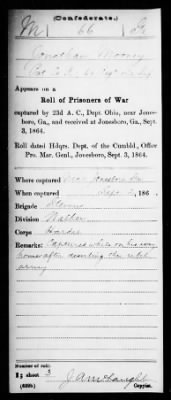 (Confederate.)
M 66 Ga
Jonathan Mooney
Appears on a
Roll of Prisoners of War
captured by 23d A. C., Dept. Ohio, near Jonesboro, Ga., and received at Jonesboro, Ga., Sept. 3, 1864.
Roll dated Hdqrs. Dept. of the Cumbl'd., Office Pro. Mar. Genl., Jonesboro, Sept. 3, 1864.
Where captured Near Jonesboro Ga
When captured Sept. 2, 186
Brigade Stevens
Division Walker
Corps Hardee
Remarks: Captured while on his way
home after deserting the rebel
army
Number of roll:
1; sheet 3
(639b) Copyist.